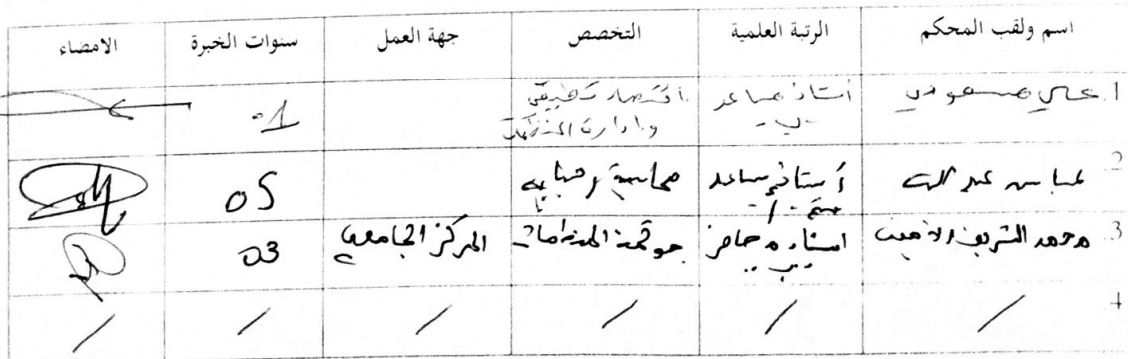 اسم ولقب المحكم الرتبة العلمية التخصص جهة العمل سنوات الخبرة الامضاء
1. علي مسعودي أستاذ مساعد ب اقتصاد تطبيقي وإدارة المنظمات 01
2 عباس عبد الله أستاذ مساعد محاسبة وجباية 05
3 محمد الشريف الأمين أستاذ محاضر ب حوكمة المنظمات المركز الجامعي 03
4 / / / / / /